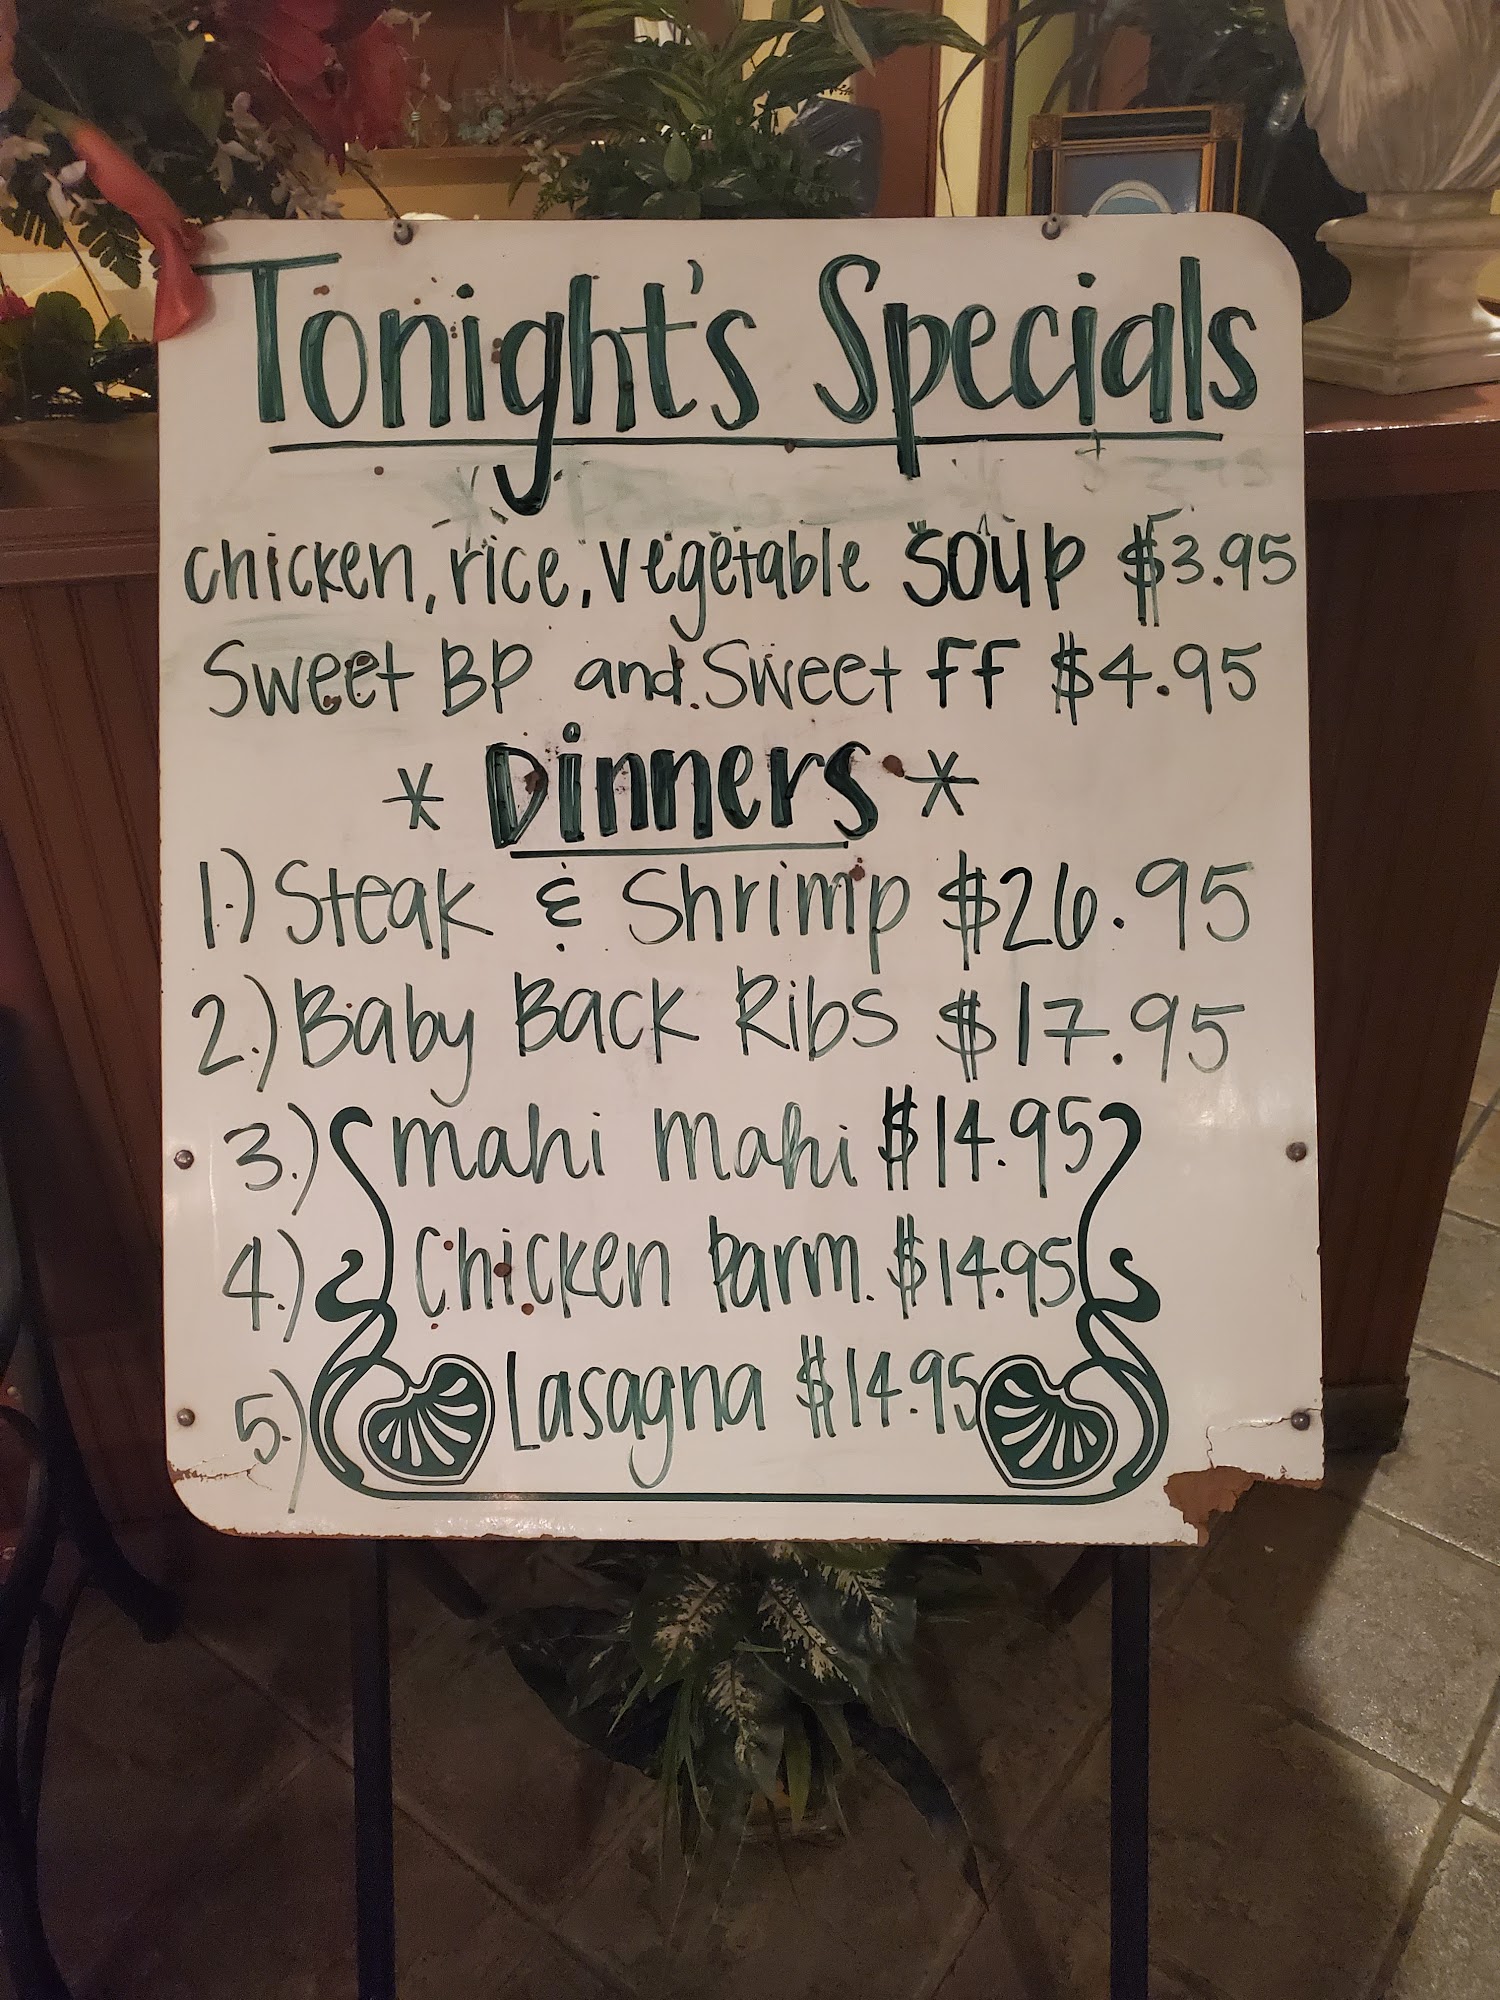 Tonight's Specials
chicken, rice, vegetable soup $3.95
Sweet BP and Sweet FF $4.95
* Dinners *
1.) Steak & Shrimp $26.95
2.) Baby Back Ribs $17.95
3.) mahi mahi $14.95
4.) Chicken Parm. $14.95
5.) Lasagna $14.95